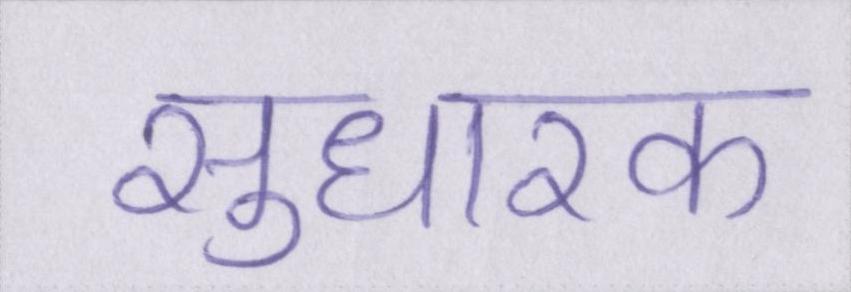 सुधारक